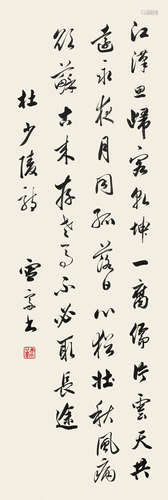 江漢思歸客乾坤一腐儒片雲天共
遠永夜月同孤落日心猶壯秋風病
欲蘇古來存老馬不必取長途
杜少陵詩
雪書